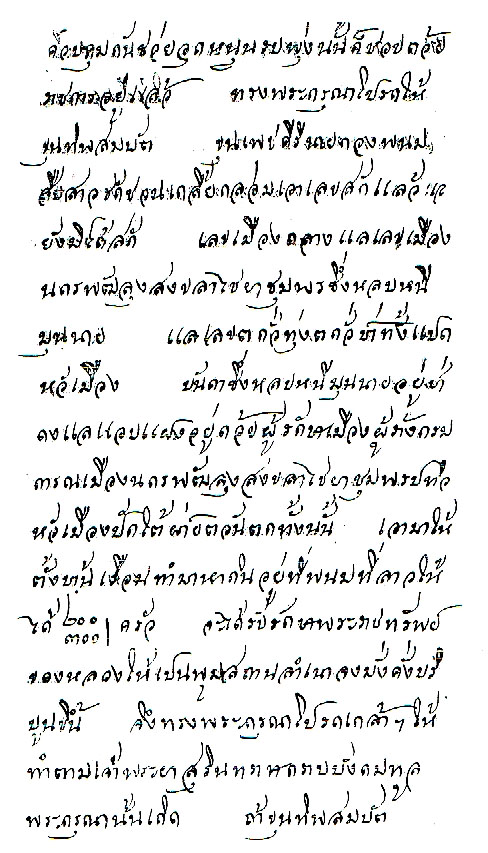 ด้วยคุมกันช่วยอุดหนุนรบพุ่งนั้นก็ชอบด้วย
ราชการอยู่แล้ว ทรงพระกรุณาโปรดให้
ขุนทิพสมบัติ ขุนเพชคีรี นายกองพนม
สืบสาวชักชวนเกลี้ยกล่อมเอาเลขสักแลว
ยังมิได้สัก เลขเมืองถลาง แลเลขเมือง
นครพัฒลุงสงขลาไชยาชุมพรซึ่งหลบหนี
มุนนาย แลเลขตกั่วทุ่งตกั่วป่าทั้งแปด
หัวเมือง บันดาซึ่งหลบหนีมุนนายอยู่ป่า
ดงแลแอบแฝงอยู่ด้วยผู้รักษเมืองผู้รั้งกรม
การณเมืองนครพัฒลุงสงขลาไชยาชุมพรปทิว
หัวเมืองปักใต้ฝ่ายตวันตกทั้งนั้น เอามาให้
ตั้งบ้านเรือนทำมาหากินอยู่ที่พนมที่ลาวให้
ได้ ๒๐๐ ๓๐๐ ครัว จะได้รับรักษพระราชทรัพย
ของหลวงให้เปนพูมสถานลำเนาจงมั่งคั่งบริ
บูนขึ้น จึงทรงพระกรุณาโปรดเกล้าฯ ให้
ทำตามเจ้าพระยาสุรินทราชกราบบังคมทูล
พระกรุณานั้นเถิด ถ้าขุนทิพสมบัติ